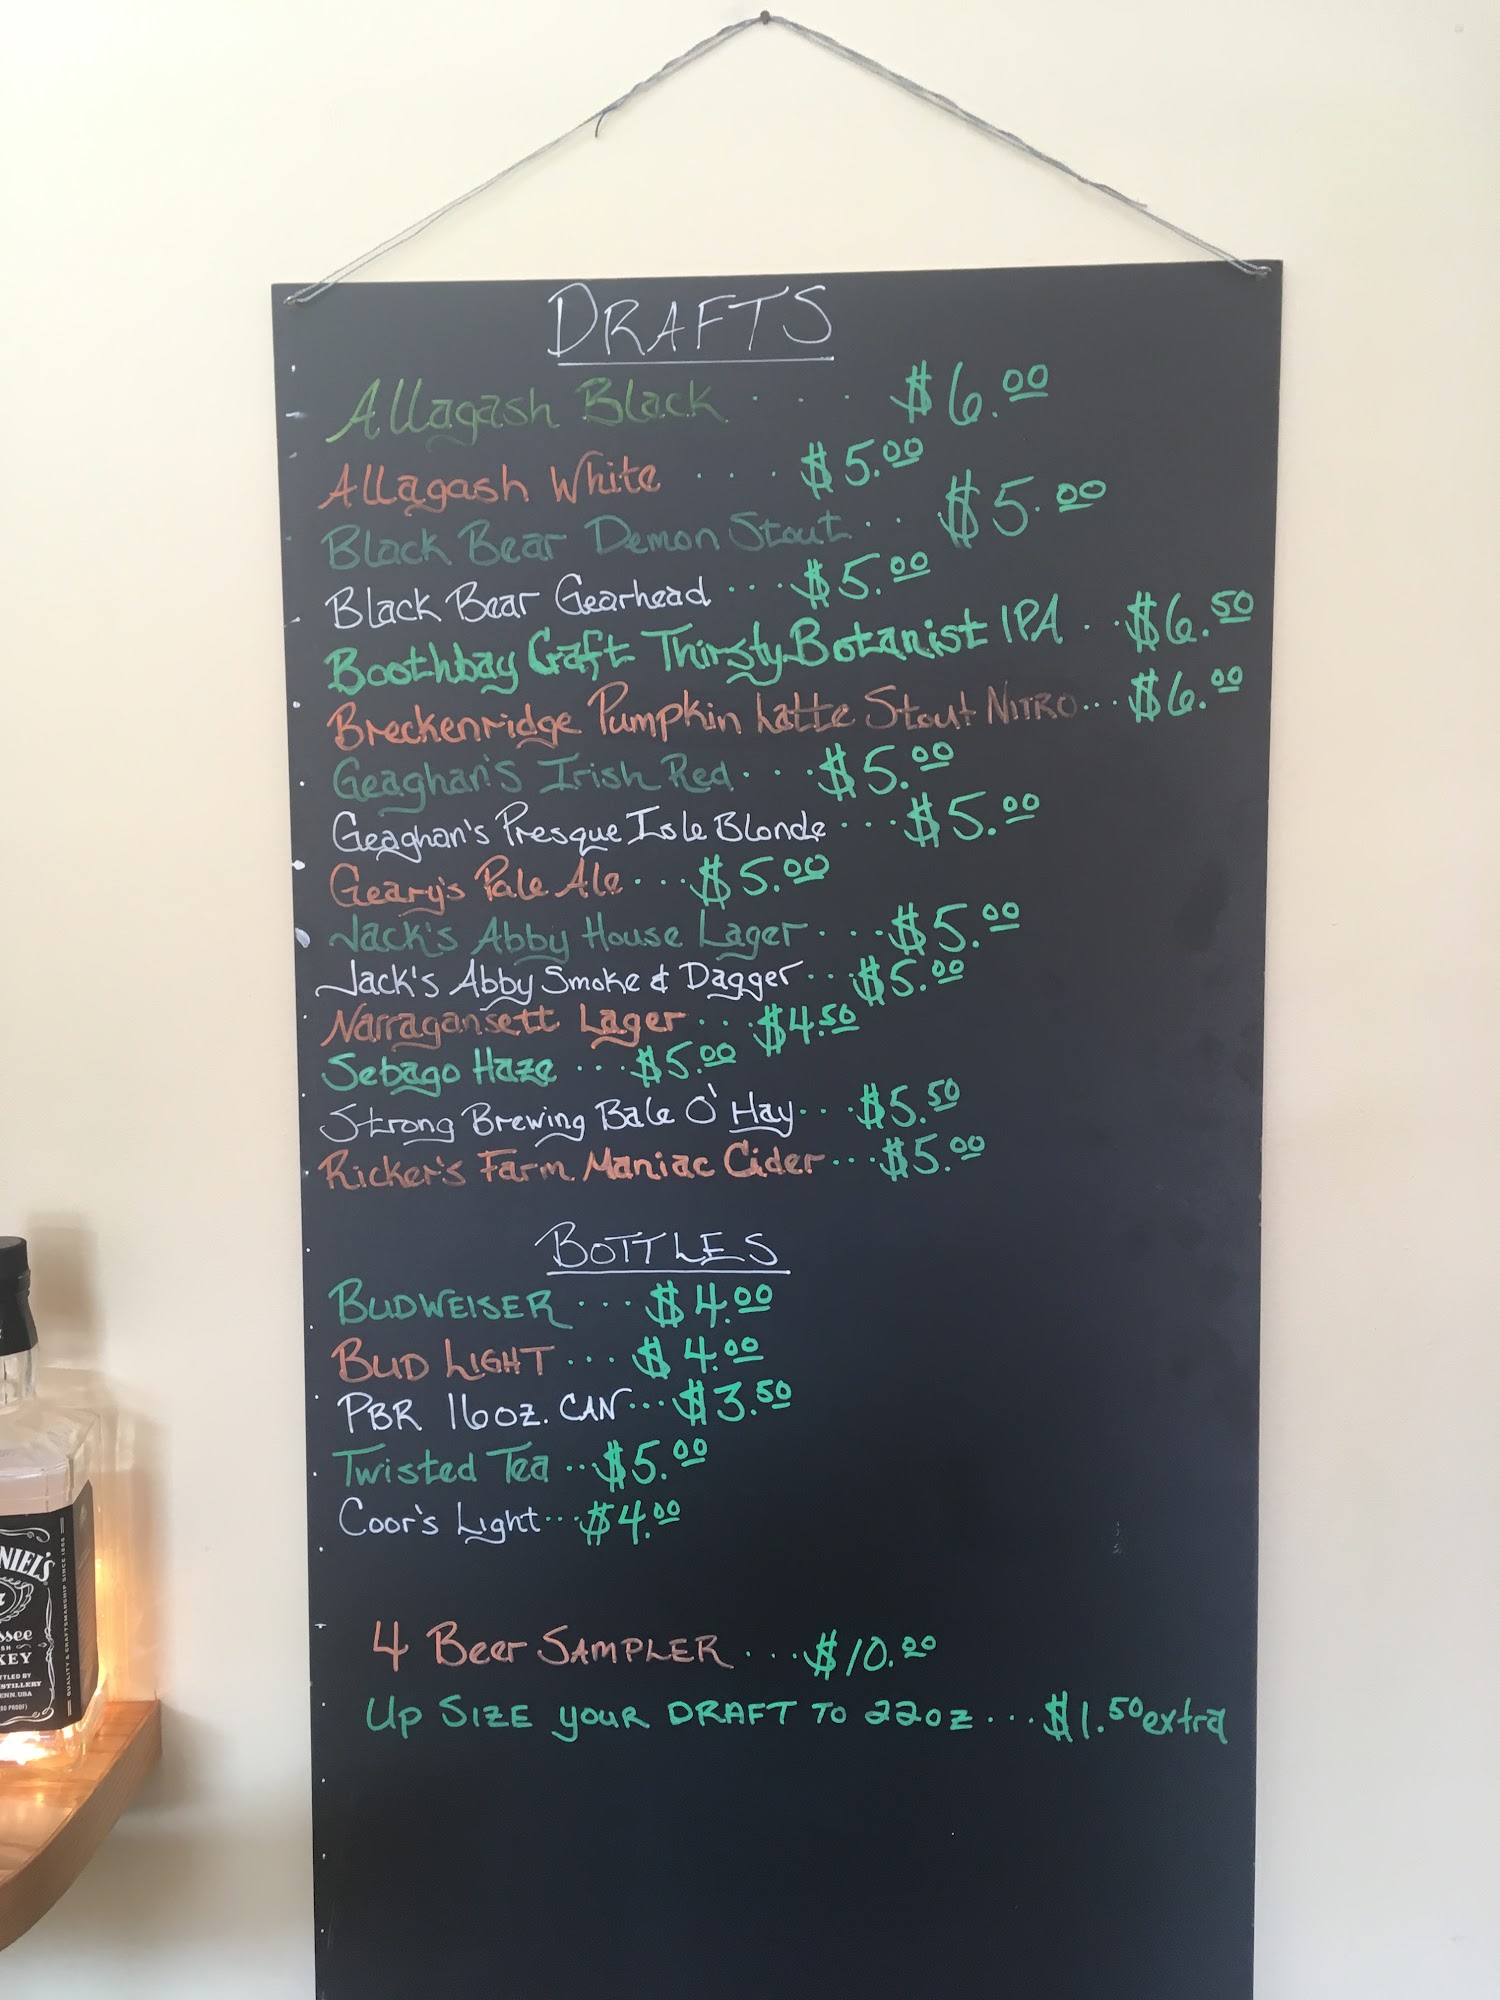 DRAFTS
Allagash Black . . . $6.00
Allagash White . . . . $5.00
Black Bear Demon Stout . . $5.00
Black Bear Gearhead . . . . $5.00
Boothbay Craft Thirsty Botanist IPA . . $6.50
Breckenridge Pumpkin Latte Stout NITRO . . . $6.00
Geaghan's Irish Red . . . . $5.00
Geaghan's Presque Isle Blonde . . . . $5.00
Geary's Pale Ale . . . . $5.00
Jack's Abby House Lager . . . . $5.00
Jack's Abby Smoke & Dagger . . . $5.00
Narragansett Lager . . . . $4.50
Sebago Haze . . . . $5.00
Strong Brewing Bale O' Hay . . . . $5.50
Ricker's Farm Maniac Cider . . . . $5.00
BOTTLES
BUDWEISER . . . . $4.00
BUD LIGHT . . . . $4.00
PBR 16oz. CAN . . . . $3.50
Twisted Tea . . . $5.00
Coor's Light . . . . $4.00
4 Beer SAMPLER . . . . $10.00
Up SIZE your DRAFT TO 22oz . . . . $1.50 extra
NIEL'S
QUALITY & CRAFTSMANSHIP SINCE 1866
ssee
KEY
TLED BY
STILLERY
ENN. USA
PROOF)